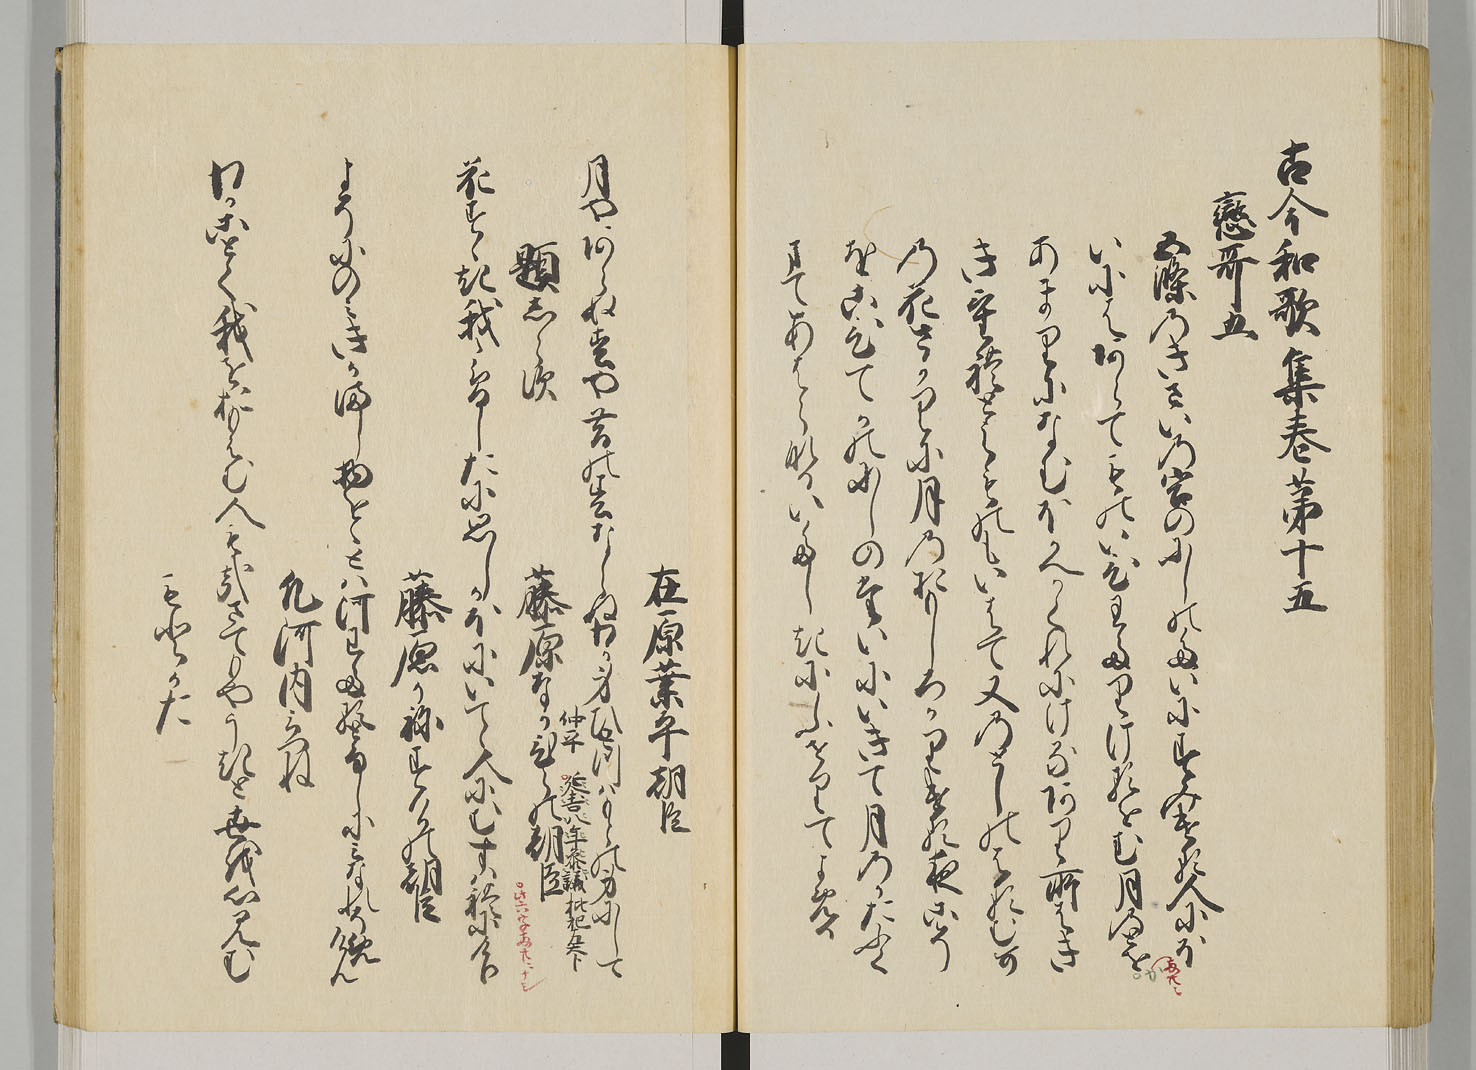 古今和歌集巻第十五
戀哥五
五條のきさいの宮のにしのたいにすみける人にほ
いにはあらてものいひわたりけるをむ月のとを
あまりになむほかへかくれにけるあり所はきき
けれとえものもいはて又のとしのはるむ
の花さかりに月のおもしろかりける夜こそ
をこひてかのにしのたいにいきて月のかたふく
まてあはらなるいたしきにふせりてよめる
在原業平朝臣
月やあらぬ春や昔の春ならぬわか身ひとつはもとの身にして
題しらす
藤原なかひらの朝臣
仲平
延喜八年参議 枇杷左大臣
花すすき我こそしたに思しかほにいてて人にむすはれにけり
藤原かねすけの朝臣
よそにのみきかまし物をおとは河わたるとなしにみなれそめけん
凡河内みつね
わかことく我をおもはむ人もかなさてもやうきと世を心見む
もとかた